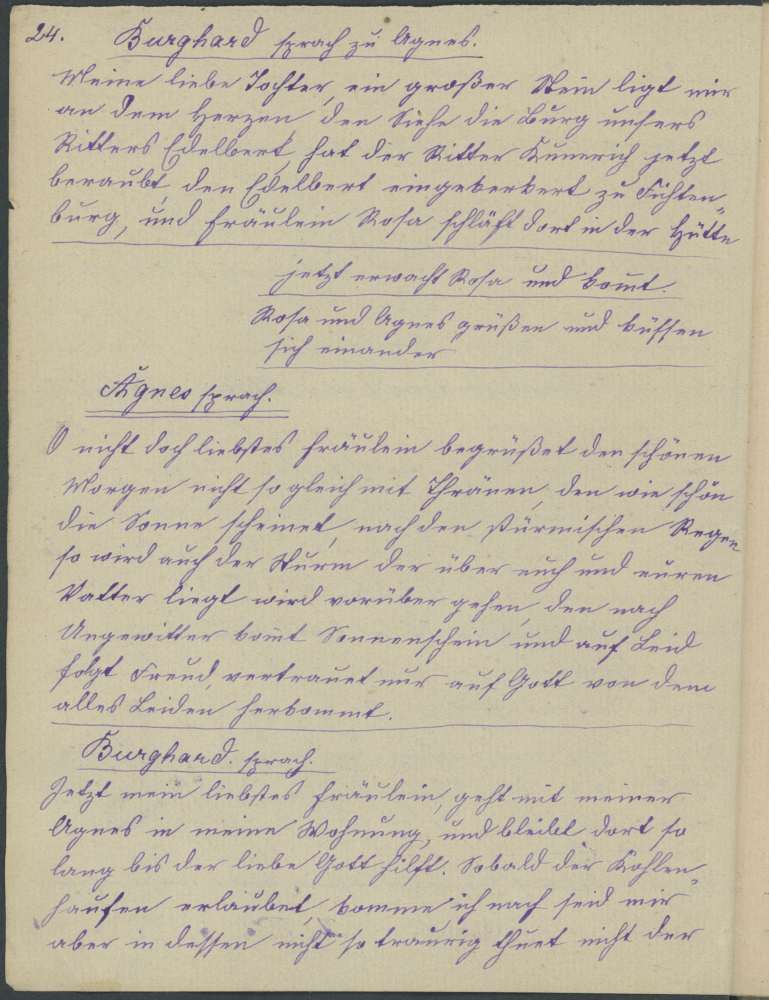 24. Burghard sprach zu Agnes.
Meine liebe Tochter, ein großer Stein ligt mir
an dem Herzen, den Siehe die Burg unsers
Ritters Edelbert, hat der Ritter Kunerich jetzt
beraubt, den Edelbert eingekerkert zu Fichten„
burg, und Fräulein Rosa schläft dort in der Hütte
jetzt erwacht Rosa und komt.
Rosa und Agnes grüßen und küssen
sich einander
Agnes sprach.
O nicht doch liebstes Fräulein begrüßet den schönen
Morgen nicht so gleich mit Thränen, den wie schön
die Sonne scheinet, nach den stürmischen Regen
so wird auch der Sturm der über euch und euren
Vatter liegt wird vorüber gehen, den nach
Ungewitter komt Sonnenschein und auf Leid
folgt Freud, vertrauet nur auf Gott von dem
alles Leiden herkommt.
Burghard. sprach.
Jetzt mein liebstes Fräulein, geht mit meiner
Agnes in meine Wohnung, und bleibt dort so
lang bis der liebe Gott hilft. Sobald der Kohlen„
haufen erlaubet, komme ich nach seid mir
aber in dessen nicht so traurig thuet nicht der